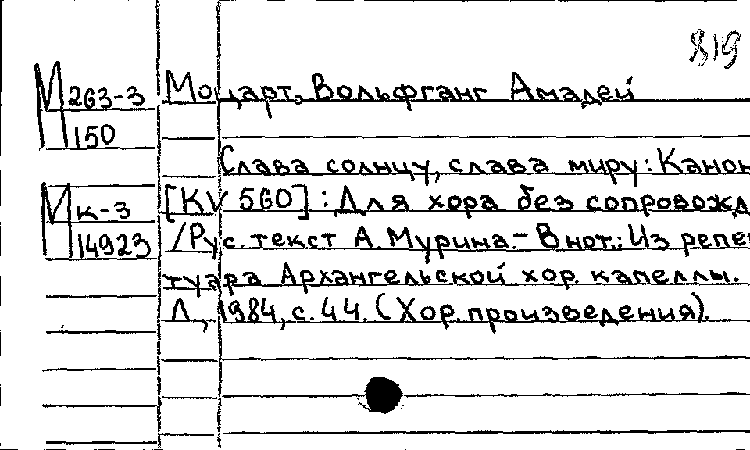 819
М 263-3 Моцарт, Вольфганг Амадей
150
Слава солнцу, слава миру: Канон
М к-3 [KV 560]: Для хора без сопровожд
14923 /Рус. текст А. Мурина.- В нот.: Из репе
туара Архангельской хор. капеллы.
Л., 1984, с. 44. (Хор. произведения).